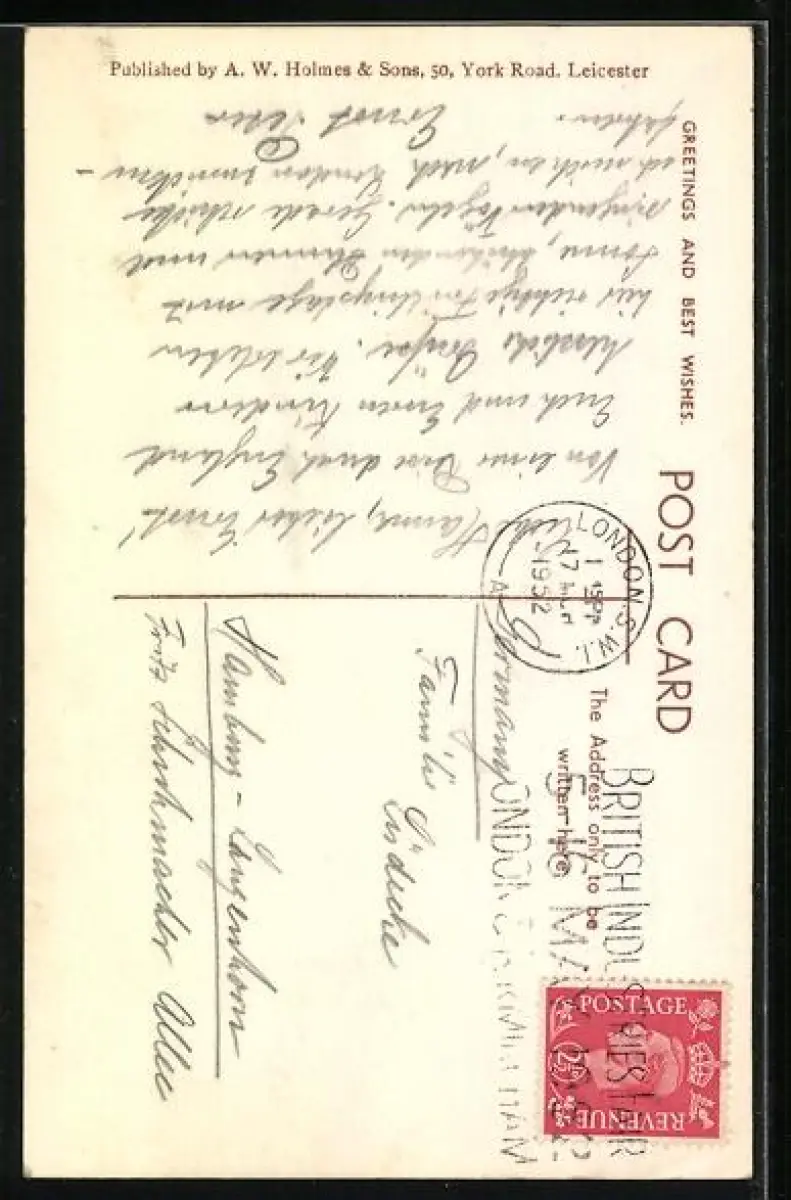 Published by A. W. Holmes & Sons, 50, York Road, Leicester
GREETINGS AND BEST WISHES.
POST CARD
The Address only to be
written here.
Liebe Hanna, lieber Ernst!
Von einer Reise durch England
Euch und Euren Kindern
herzliche Grüße. Wir erleben
hier richtige Frühlingstage mit
Sonne, blühenden Blumen und
singenden Vögeln. Gerade
ich nach London
Ernst
LONDON. S.W.1.
1 15 PM
1952
BRITISH INDUSTRIES FAIR
LONDON & BIRMINGHAM
5-16 MAY 1952
POSTAGE
2½D
REVENUE
Germany
Familie Lüdecke
Hamburg - Langenhorn
Fritz Schuhmacher Allee